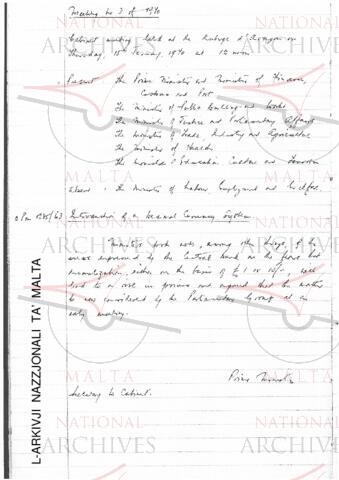 Meeting No 3 of 1970
Cabinet meeting held at the Auberge d'Aragon on
Thursday, 15th January, 1970 at 12 noon
Present : The Prime Minister and Minister of Finance,
Customs and Port
The Minister of Public Building and Works
The Minister of Justice and Parliamentary Affairs
The Minister of Trade, Industry and Agriculture
The Minister of Health
The Minister of Education, Culture and Tourism
Absent : The Minister of Labour, Employment and Welfare
Introduction of a Decimal Currency System
Ministers took note, among other things, of the
views expressed by the Central Bank
decimalization, either on the basis of £1 or 10/-,
lead to a rise in prices and agreed that the matter
be now considered by the Parliamentary Group at an
early meeting.
Prime Minister
Secretary to Cabinet.
L-ARKIVJI NAZZJONALI TA' MALTA
NATIONAL
ARCHIVES
MALTA